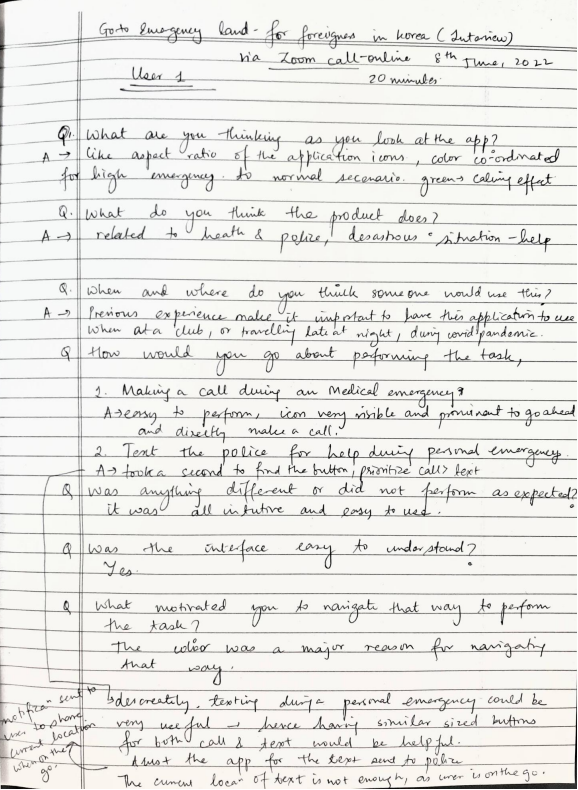 Goto Emergency land - for foreigners in Korea (Interview)
via Zoom call-online 8th June, 2022
User 1 20 minutes.
Q. What are you thinking as you look at the app?
A → like aspect ratio of the application icons, color co-ordinated
for high emergency to normal secenario. green → caling effect
Q. What do you think the product does?
A → related to heath & police, desastrous situation - help
Q. When and where do you think someone would use this?
A → Previous experience make it important to have this application to use
when at a club, or travelling late at night, during covid pandemic.
Q How would you go about performing the task,
1. Making a call during an Medical emergency?
A → easy to perform, icon very visible and prominent to go ahead
and directly make a call.
2. Text the police for help during personal emergency.
A → took a second to find the button, prioritize call > text
Q Was anything different or did not perform as expected?
it was all intutive and easy to use.
Q Was the interface easy to understand?
Yes.
Q What motivated you to navigate that way to perform
the task?
The colour was a major reason for navigating
that way.
descreatily. texting during personal emergency could be
very useful → hence having similar sized buttons
for both call & text would be helpful.
trust the app for the text sent to police
The current locaⁿ of text is not enough, as user is on the go.
notificaⁿ sent to
user to share
current location
when on the
go.